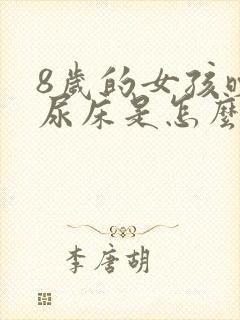 8歲的女孩
尿床是怎麼
李唐胡